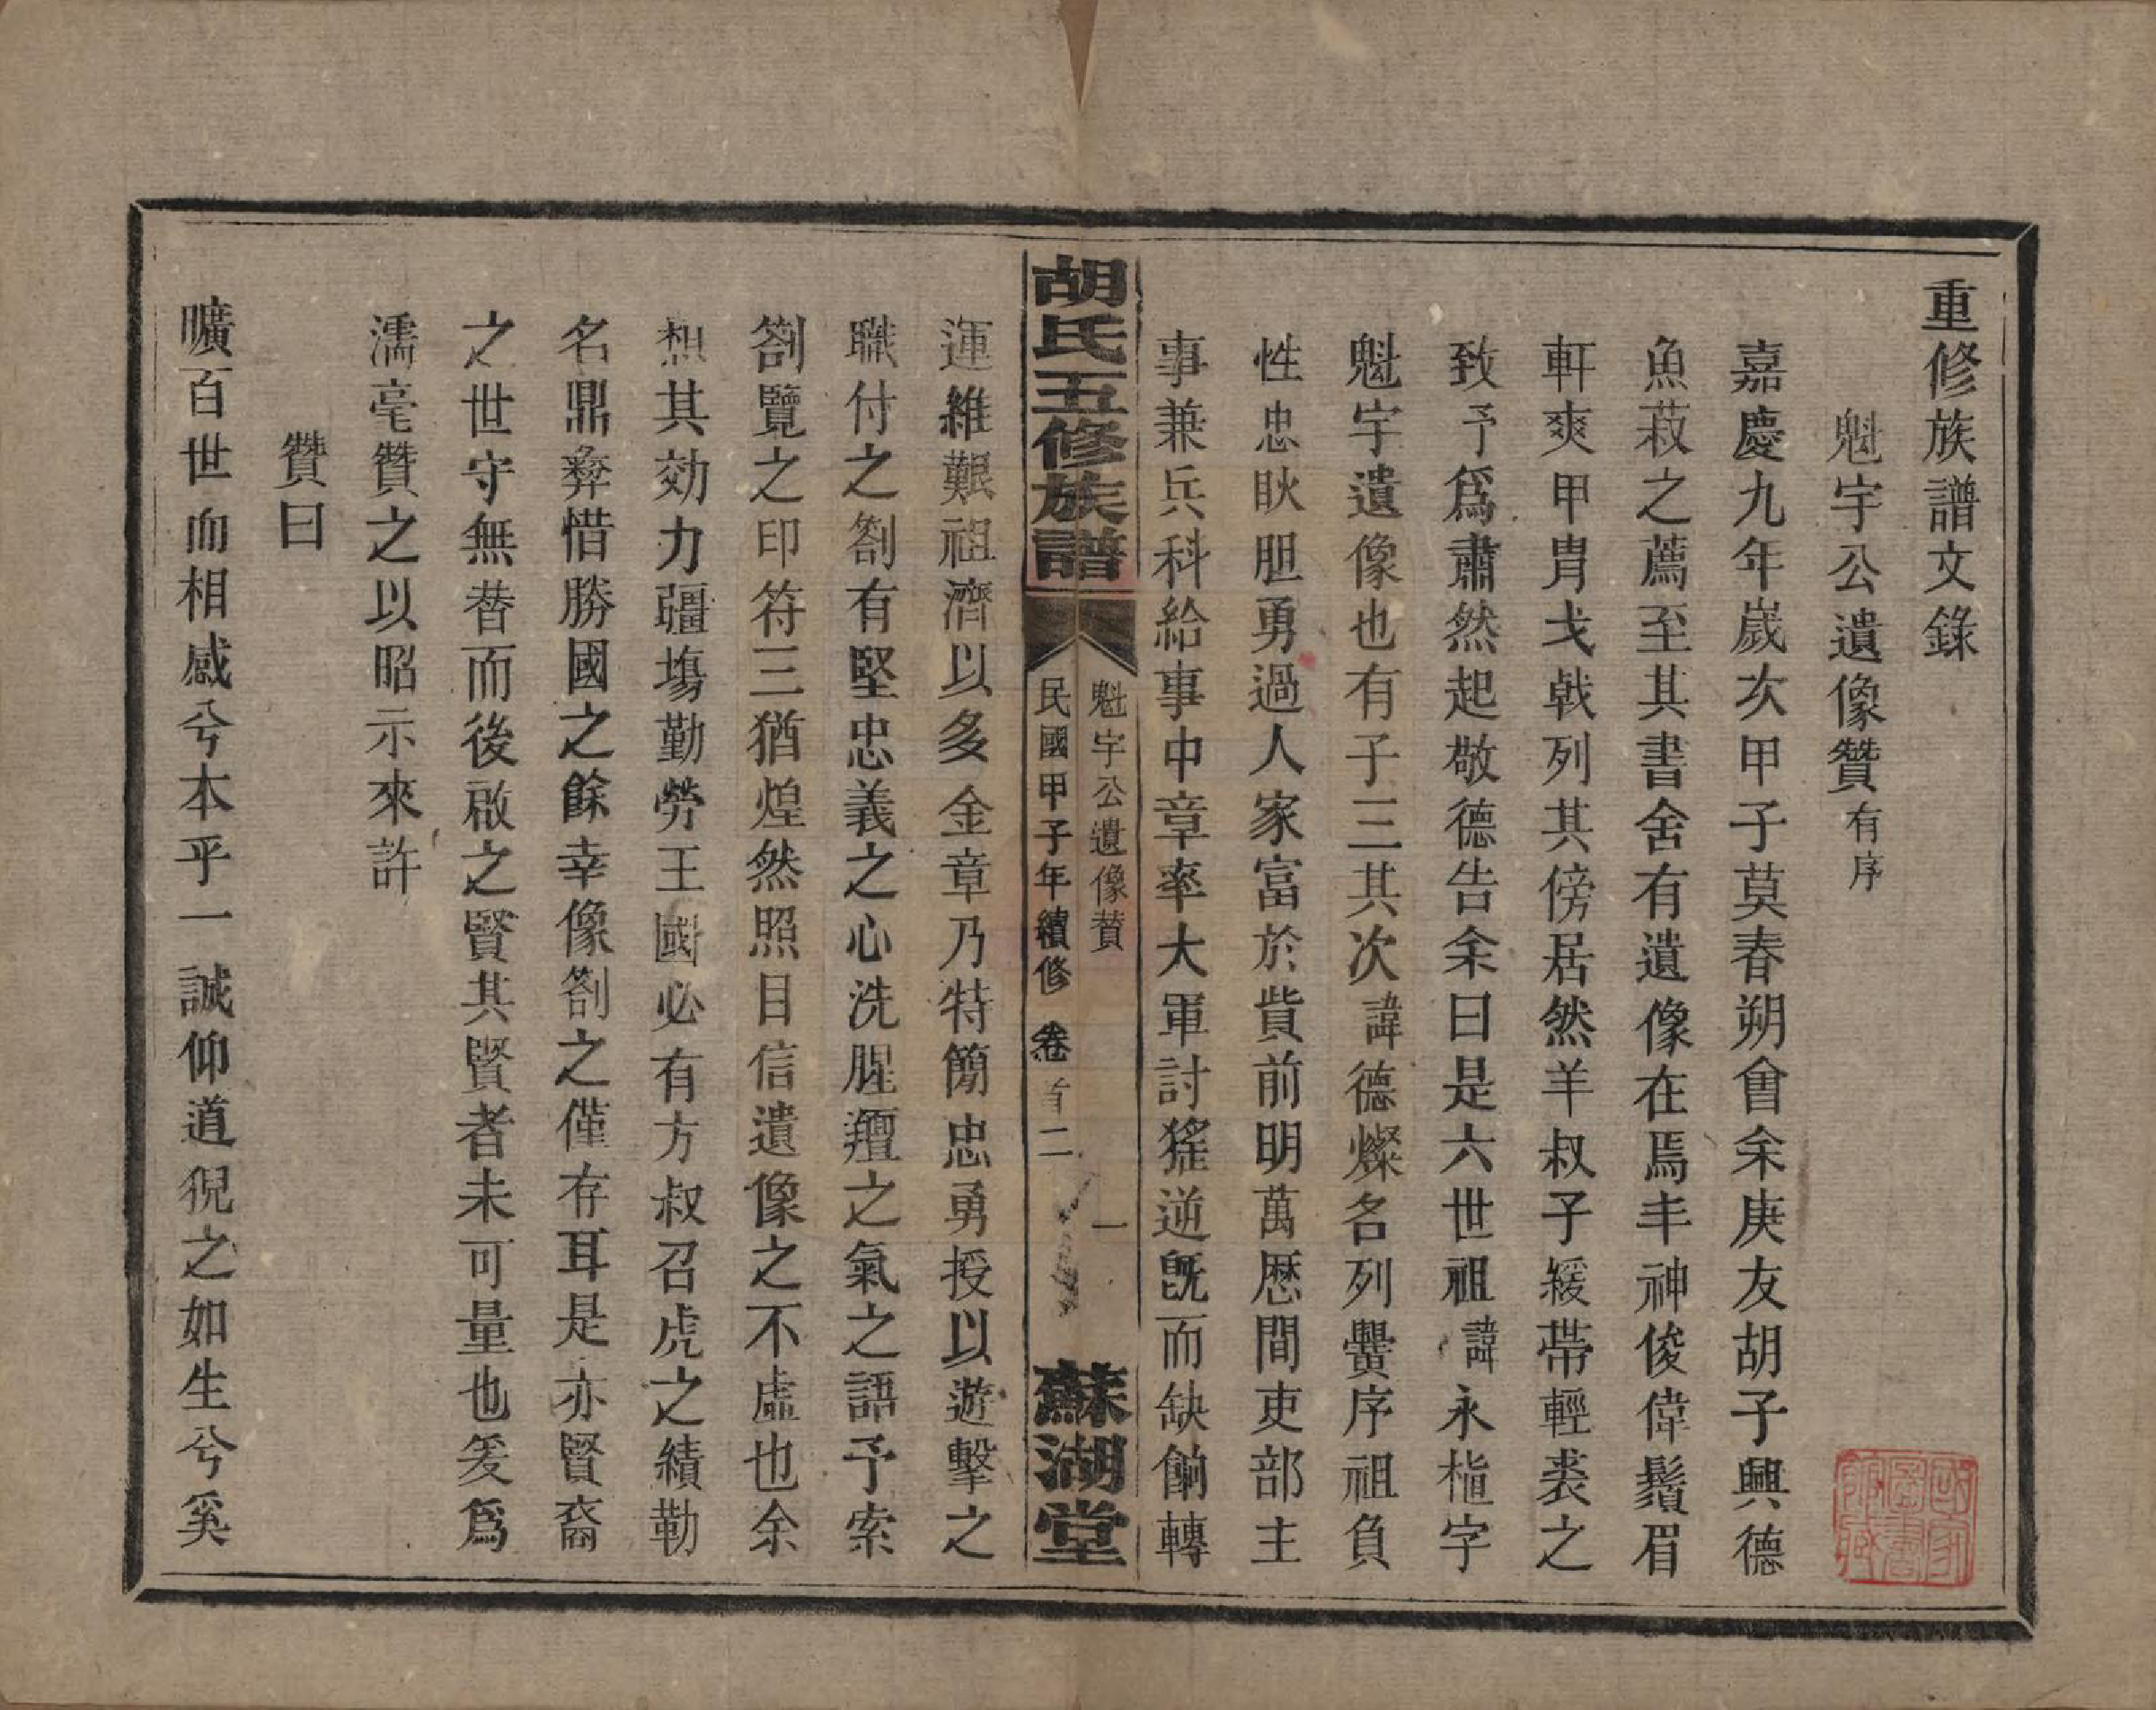 重修族譜文錄
魁宇公遺像贊有序
嘉慶九年歲次甲子莫春朔會余庚友胡子興德
魚菽之薦至其書舍有遺像在焉丰神俊偉鬚眉
軒爽甲冑戈戟列其傍居然羊叔子緩帶輕裘之
致予爲肅然起敬德告余曰是六世祖諱永楷字
魁宇遺像也有子三其次諱德燦名列黌序祖負
性忠耿胆勇過人家富於貲前明萬歷間吏部主
事兼兵科給事中章率大軍討猺逆旣而缺餉轉
胡氏五修族譜
魁宇公遺像贊
一
民國甲子年續修
卷首二
蘇湖堂
運維艱祖濟以多金章乃特簡忠勇授以遊擊之
職付之劄有堅忠義之心洗腥羶之氣之語予索
劄覽之印符三猶煌然照目信遺像之不虛也余
想其効力疆塲勤勞王國必有方叔召虎之績勒
名鼎彝惜勝國之餘幸像劄之僅存耳是亦賢裔
之世守無替而後啟之賢其賢者未可量也爰爲
濡毫贊之以昭示來許
贊曰
曠百世而相感兮本乎一誠仰道貌之如生兮奚